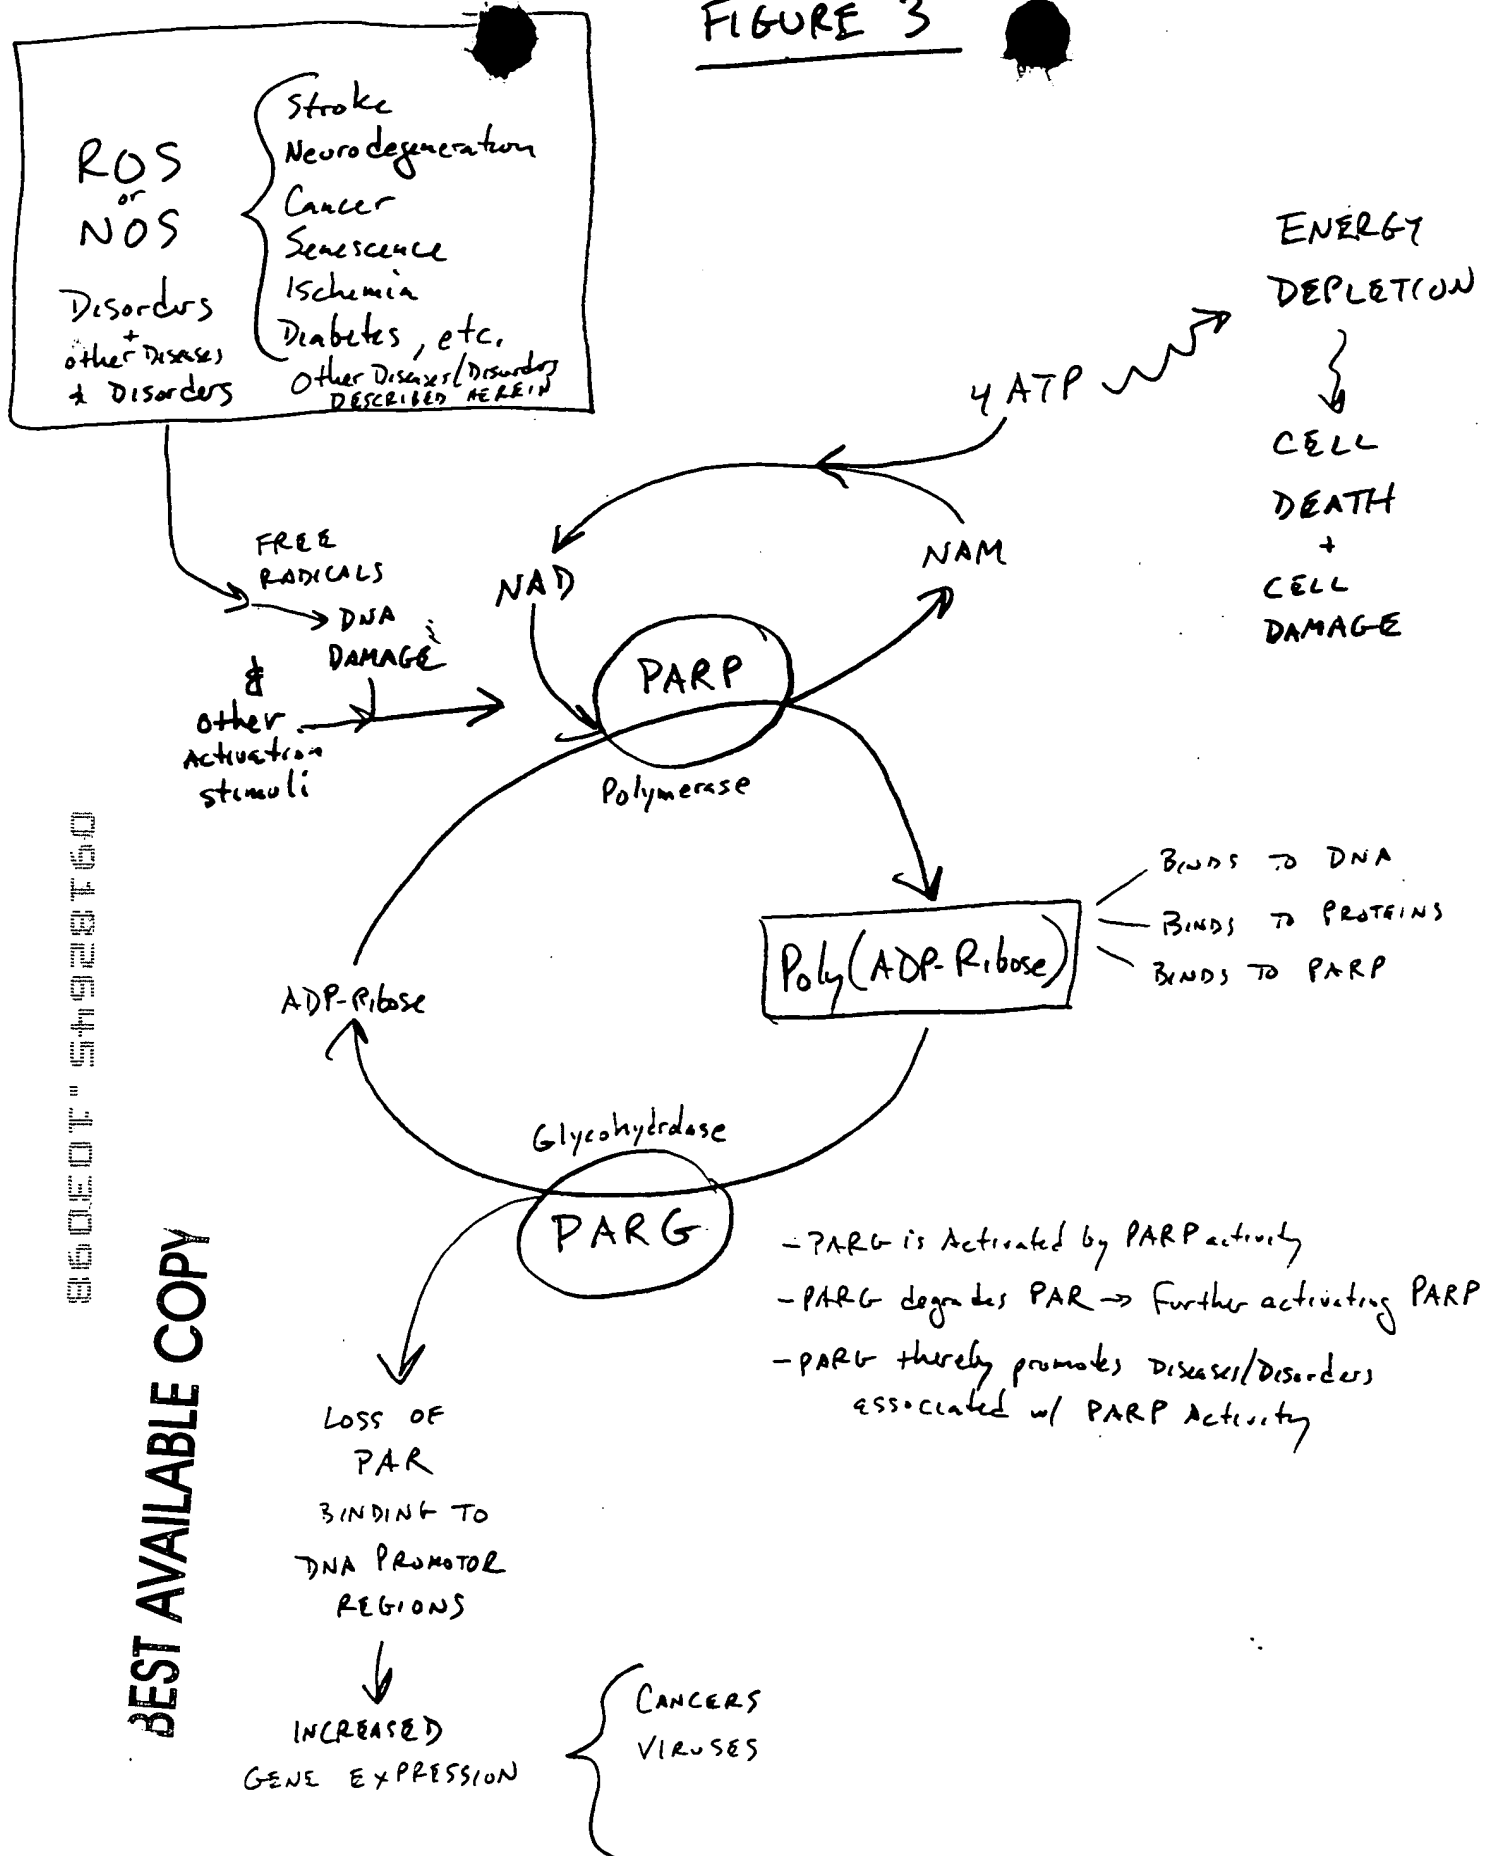 FIGURE 3
ROS
or
NOS
Disorders
+
other Diseases
& Disorders
Stroke
Neurodegeneration
Cancer
Senescence
Ischemia
Diabetes, etc.
Other Diseases/Disorders
DESCRIBED HEREIN
ENERGY
DEPLETION
4 ATP
CELL
DEATH
+
CELL
DAMAGE
FREE
RADICALS
DNA
DAMAGE
&
other
Activation
stimuli
NAD
NAM
PARP
Polymerase
Poly(ADP-Ribose)
BINDS TO DNA
BINDS TO PROTEINS
BINDS TO PARP
ADP-Ribose
Glycohydrolase
PARG
- PARG is Activated by PARP activity
- PARG degrades PAR → Further activating PARP
- PARG thereby promotes Diseases/Disorders
associated w/ PARP Activity
LOSS OF
PAR
BINDING TO
DNA PROMOTOR
REGIONS
INCREASED
GENE EXPRESSION
CANCERS
VIRUSES
09182645.103098
BEST AVAILABLE COPY